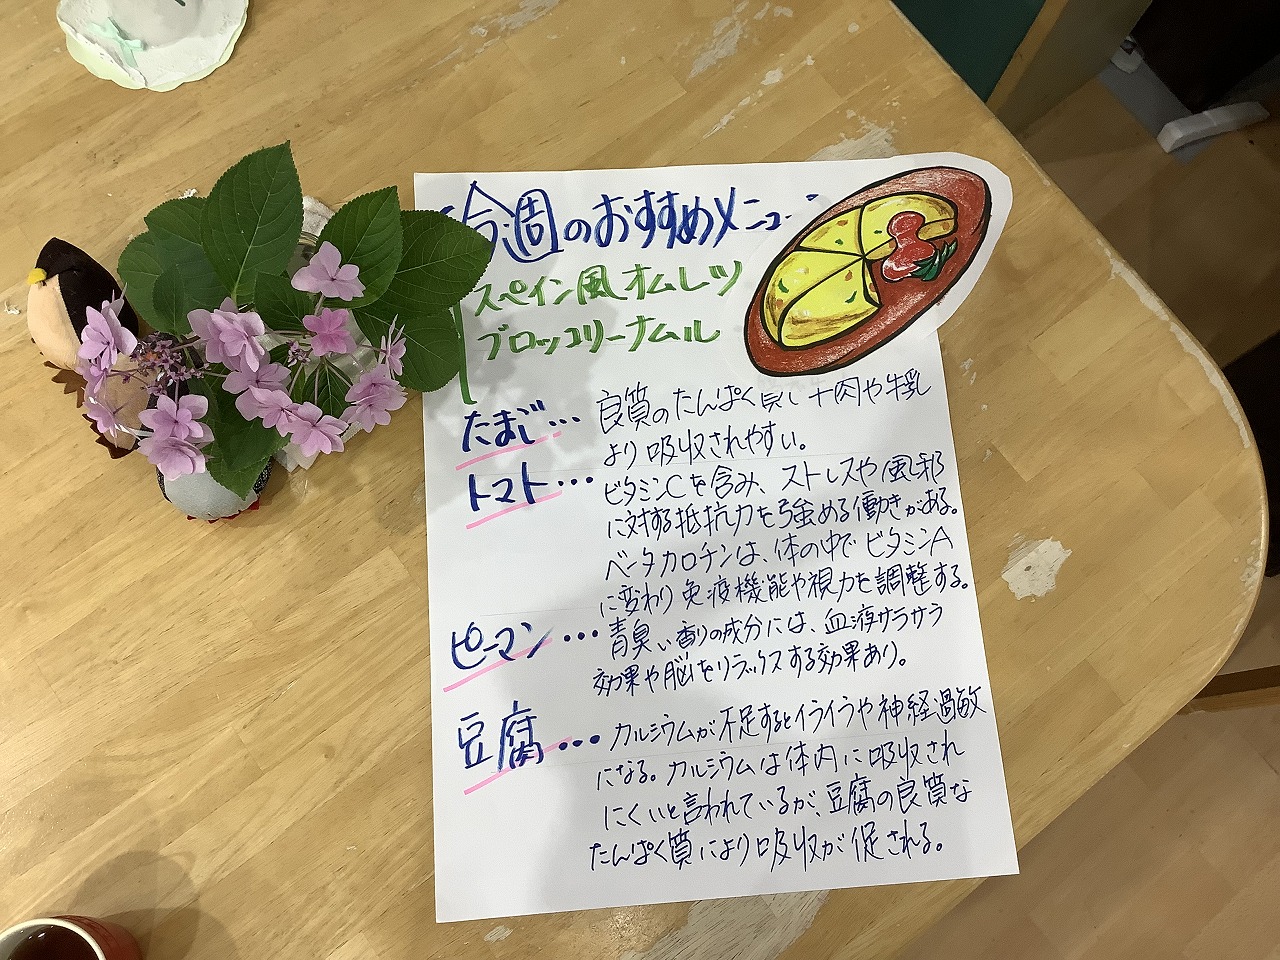 今週のおすすめメニュー
スペイン風オムレツ
ブロッコリーナムル
たまご… 良質のたんぱく質で 肉や牛乳
より吸収されやすい。
トマト… ビタミンCを含み、ストレスや風邪
に対する抵抗力を強める働きがある。
ベータカロチンは、体の中でビタミンA
に変わり免疫機能や視力を調整する。
ピーマン… 青臭い香りの成分には、血液サラサラ
効果や脳をリラックスする効果あり。
豆腐… カルシウムが不足するとイライラや神経過敏
になる。カルシウムは体内に吸収され
にくいと言われているが、豆腐の良質な
たんぱく質により吸収が促される。